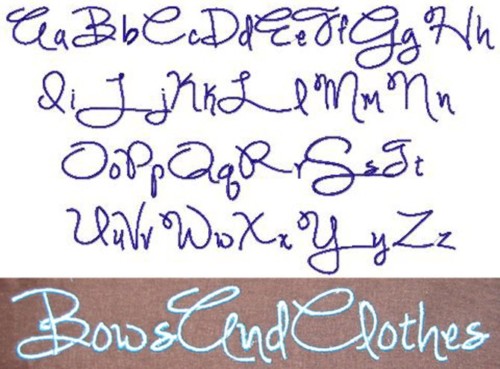 AaBbCcDdEeFfGgHh
IiJjKkLlMmNn
OoPpQqRrSsTt
UuVvWwXxYyZz
BowsAndClothes